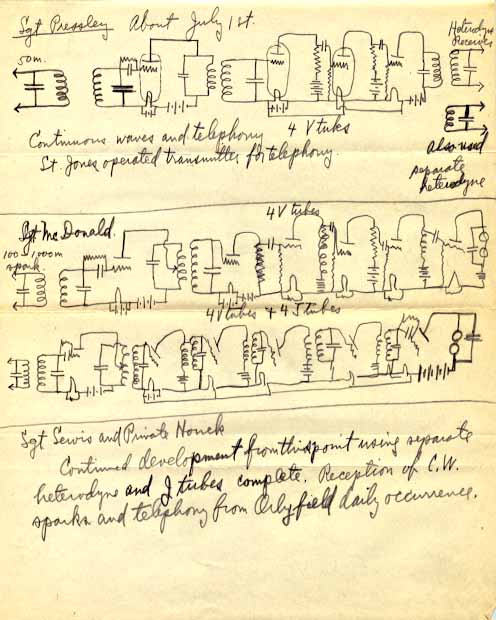 Sgt Pressley About July 1st.
50m.
Heterodyne
Receiver
Continuous waves and telephony 4 V tubes
St. Jones operated transmitter for telephony.
also used
separate
heterodyne
Sgt McDonald.
4V tubes
100 1000m
spark.
4V tubes + 4 J tubes
Sgt Servis and Private Houck
Continued development from this point using separate
heterodyne and J tubes complete. Reception of C.W.
sparks and telephony from Orly field daily occurrence.